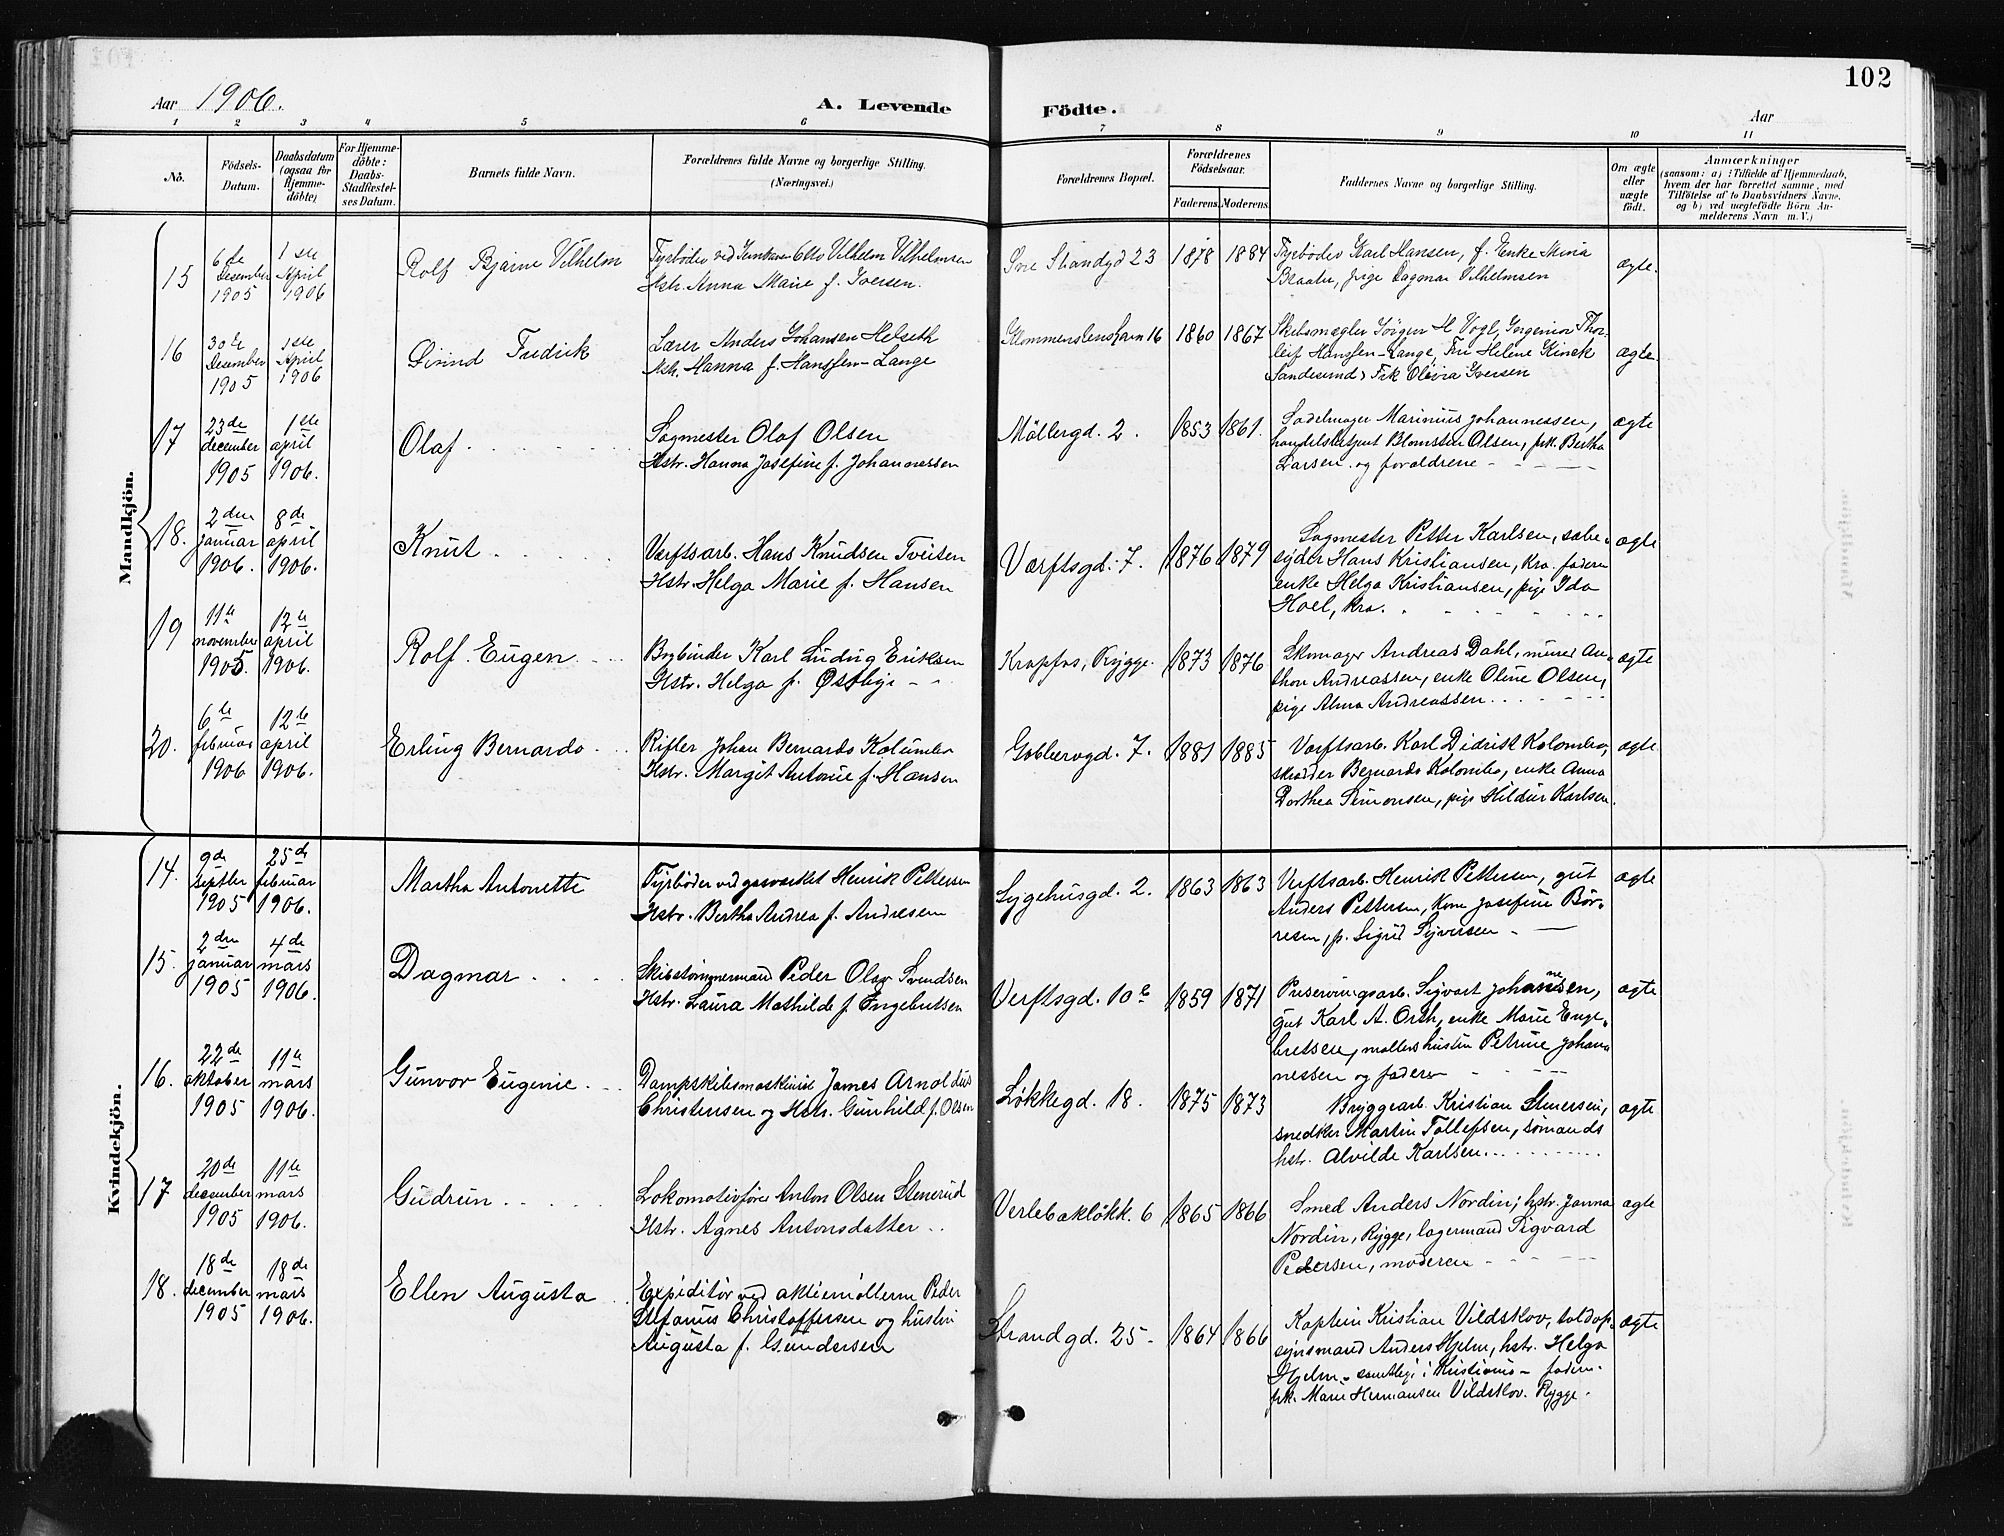 102
Aar 1906.
A. Levende Födte.
Aar
1 2 3 4 5 6 7 8 9 10 11
No.
Födsels-
Datum.
Daabsdatum
(ogsaa for
Hjemme-
döbte)
For Hjemme-
döbte:
Daabs-
Stadfæstel-
ses Datum.
Barnets fulde Navn.
Forældrenes fulde Navne og borgerlige Stilling.
(Næringsvei.)
Forældrenes Bopæl.
Forældrenes
Födselsaar.
Faderens.
Moderens.
Faddernes Navne og borgerlige Stilling.
Om ægte
eller
uægte
födt.
Anmærkninger
(saasom: a) i Tilfælde af Hjemmedaab,
hvem der har forrettet samme, med
Tilföielse af to Daabsvidners Navne.
og b) ved uægtefödte Börn An-
melderens Navn m. V.)
Mandkjön.
15
6te
Desember
1905
1ste
April
1906
Rolf Bjarne Vilhelm
Fyrböder ved Otto Vilhelm Vilhelmsen
Hstr. Anna Marie f. Iversen.
Strandgd 23
1878
1884
Fyrböder Karl Hansen, f. Enke Mina
pige Dagmar Vilhelmsen
ægte.
16
30te
Desember
1905
1ste
April
1906
Öivind Fredrik
Lærer Anders Johansen Helseth
Hst. Hanna f. Hanssen-Lange
16
1860
1867
Skibsmægler Jörgen H Vogt, Ingeniör Thor-
leif Hanssen-Lange, Fru Helene Kinck
Sandesund, Frk Olovia Iversen
ægte
17
23de
december
1905
1ste
april
1906.
Olaf
Sagmester Olaf Olsen
Hstr. Hanna Josefine f. Johannessen
Möllergd. 2.
1853
1861.
Sadelmager Marinius Johannessen,
handelsbetjent Blomsten Olsen, frk. Bertha
Larsen og forældrene
ægte
18.
2den
januar
1906.
8de
april
1906.
Knut
Værftsarb. Hans Knudsen Tveiten
Hstr. Helga Marie f. Hansen
Værftsgd. 7.
1876
1879
Sagmester Petter Karlsen,
Hans Kristiansen, Kra. faderen
enke Helga Kristiansen, pige Ida
Hoel, kra.
ægte
19
11te
november
1905.
12te
april
1906.
Rolf Eugen
Bogbinder Karl Ludvig Eriksen
Hstr. Helga f. Østbye
Krapfos, Rygge.
1873
1876
Skomager Andreas Dahl, murer An-
thon Andreassen, enke Oline Olsen,
pige Alma Andreassen
ægte
20.
6te
februar
1906
12te
april
1906.
Erling Bernardo
Rifler Johan Bernardo Kolumbo
Hstr. Margit Antonie f. Hansen
7.
1881
1885
Værftsarb. Karl Didrik Kolombo,
skrædder Bernardo Kolombo, enke Anna
Dorthea Simonsen, pige Hildur Karlsen.
ægte
Kvindekjön.
14.
9de
septbr
1905
25de
februar
1906.
Martha Antonette
Fyrböder ved gasværket Henrik Pettersen
Hstr. Bertha Andrea f. Andresen
Sygehusgd. 2.
1863
1863
Verftsarb. Henrik Pettersen, gut
Anders Pettersen, Kone Josefine Bör-
resen, p. Sigrid Syversen
ægte
15.
2den
januar
1905
4de
mars
1906.
Dagmar
Skibstömmermand Peder Olav Svendsen
Hstr. Laura Mathilde f. Ingebretsen
Verftsgd. 10 b
1859
1871
Sigvart Johannesen,
gut Karl A. Orth, enke Marie Enge-
bretsen, möllers hustru Petrine Johan-
nessen og faderen
ægte
16.
22de
oktober
1905
11te
mars
1906.
Gunvor Eugenie
Dampskibsmaskinist James Arnoldus
Christensen og Hstr. Gunhild f. Olsen
Løkkegd. 18.
1875
1873
Bryggearb. Kristian Stenersen,
snedker Martin Tollefsen, sömands
hstr. Alvilde Karlsen.
ægte
17
20de
december
1905
11te
mars
1906.
Gudrun
Lokomotivförer Anton Olsen Stenerud
Hstr. Agnes Antonsdatter
Verlebaklökk. 6
1865
1866
Smed Anders Nordin, hstr. Janna
Nordin, Rygge, lagermand Sigvard
Pedersen, moderen
ægte
18.
18de
december
1905
18de
mars
1906.
Ellen Augusta
Expeditör ved aktiemöllerne Peder
Stefanus Christoffersen og hustru
Augusta f. Gundersen
Strandgd. 25
1864
1866
Kaptein Kristian Vildskov, toldop-
synsmand Anders Hjelm, hstr. Helga
Hjelm - samtlige i Kristiania - faderen.
frk. Marie Hermansen Vildskov. Rygge.
ægte